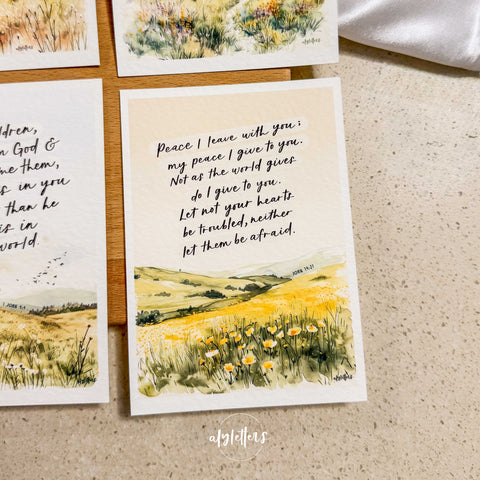 ldren,
God &
me them,
is in you
than he
is in
world.
1 JOHN 4:4
Peace I leave with you;
my peace I give to you.
Not as the world gives
do I give to you.
Let not your hearts
be troubled, neither
let them be afraid.
JOHN 14:27
alyletters